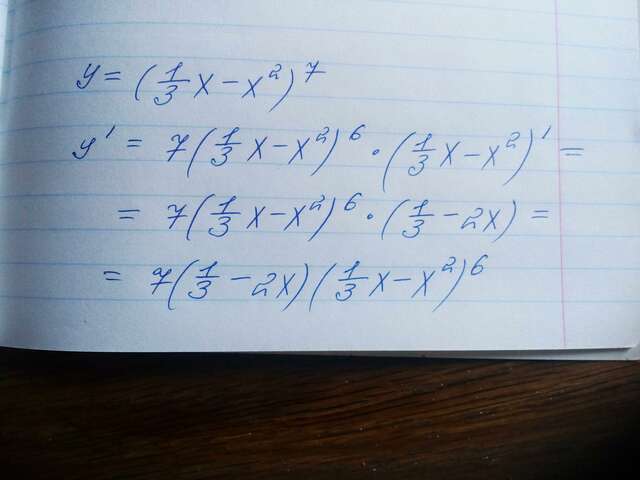 y = (1/3 x - x²)⁷
y' = 7(1/3 x - x²)⁶ · (1/3 x - x²)' =
= 7(1/3 x - x²)⁶ · (1/3 - 2x) =
= 7(1/3 - 2x)(1/3 x - x²)⁶